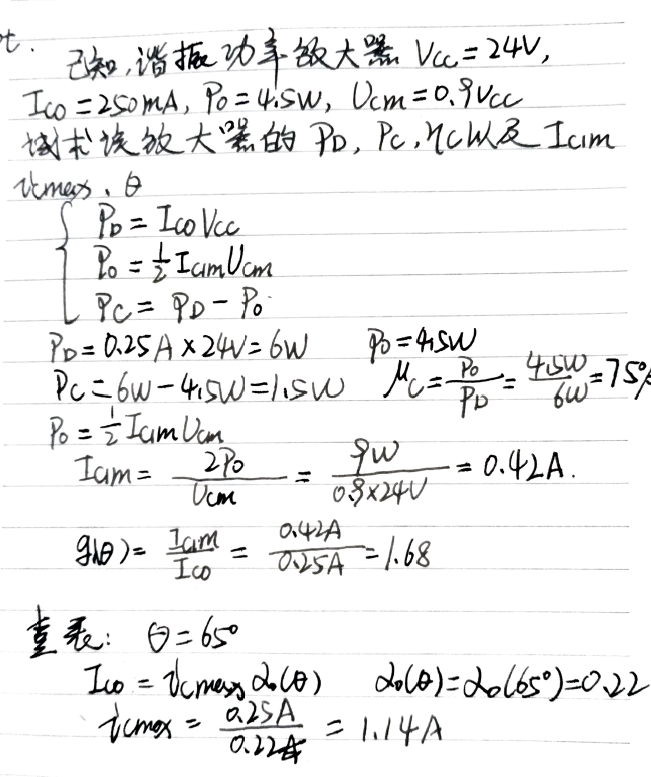 t.
已知,谐振功率放大器 Vcc = 24V,
Ico = 250mA, Po = 4.5W, Ucm = 0.9Vcc
试求该放大器的 PD, Pc, ηc以及 Icim
icmax、θ
PD = Ico Vcc
Po = 1/2 Icim Ucm
Pc = PD - Po.
PD = 0.25A × 24V = 6W Po = 4.5W
Pc = 6W - 4.5W = 1.5W μc = Po/PD = 4.5W/6W = 75%
Po = 1/2 Icim Ucm
Icim = 2Po/Ucm = 9W/0.9×24V = 0.42A.
g1(θ) = Icim/Ico = 0.42A/0.25A = 1.68
查表: θ = 65°
Ico = icmax α0(θ) α0(θ) = α0(65°) = 0.22
icmax = 0.25A/0.22 = 1.14A